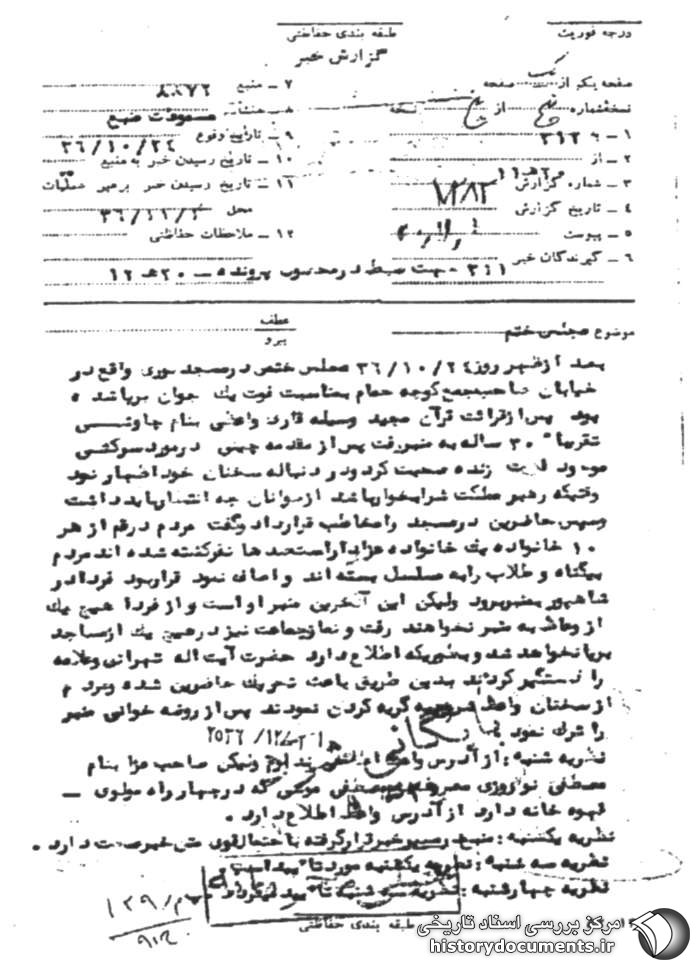 درجه فوریت
طبقه بندی حفاظتی
گزارش خبر
صفحه یکم از یک صفحه
نسخه شماره پنج از پنج نسخه
۱ – به ۳۱۲
۲ – از ۲۰ه۱۲
۳ – شماره گزارش
۴ – تاریخ گزارش
۵ – پیوست
۶ – گیرندگان خبر ۳۱۱ جهت ضبط در محسوب پرونده – ۲۰ه۱۲
۷ – منبع ۸۸۷۲
۸ – منشاء مسموعات منبع
۹ – تاریخ وقوع ۳۶/۱۰/۲۴
۱۰ – تاریخ رسیدن خبر به منبع
۱۱ – تاریخ رسیدن خبر برهبر عملیات
محل ۳۶/۱۱/۲
۱۲ – ملاحظات حفاظتی
موضوع مجلس ختم
عطف
پیرو
بعد از ظهر روز ۳۶/۱۰/۲۴ مجلس ختمی در مسجد نوری واقع در
خیابان صاحب جمع کوچه حمام بمناسبت فوت یک جوان برپا شده
بود پس از قرائت قرآن مجید وسیله قاری واعظی بنام چاوشی
تقریبا" ۳۰ ساله به منبر رفت پس از مقدمه چینی در مورد سوکشی
موجود زنده صحبت کرد و در دنباله سخنان خود اظهار نمود
وقتیکه رهبر مملکت شرابخوار باشد از جوانان چه انتظار باید داشت
وسپس حاضرین در مسجد را مخاطب قرار داد وگفت مردم در قم از هر
۱۰ خانواده یک خانواده عزادار است صدها نفر کشته شده اند مردم
بیگناه و طلاب را به مسلسل بسته اند و اضافه نمود قرار بود فردا در
شاهپور بمنبر برود ولیکن این آخرین منبر او است و از فردا هیچ یک
از وعاظ به منبر نخواهند رفت و نماز جماعت نیز در هیچ یک از مساجد
برپا نخواهد شد و بطوریکه اطلاع دارد حضرت آیت اله تهرانی وعلامه
را دستگیر کردند بدین طریق باعث تحریک حاضرین شده ومردم
از سخنان واعظ شروع به گریه کردن نمودند پس از روضه خوانی منبر
را ترک نمود
بایگانی
۲۵۳۶/۱۲/
نظریه شنبه : از آدرس واعظ ولیکن صاحب عزا بنام
مصطفی نوروزی معروف به مصطفی که در چهار راه مولوی –
قهوه خانه دارد از آدرس واعظ اطلاع دارد .
نظریه یکشنبه : منبع رهبر خبر قرار گرفته با احتمال قوی خبر صحت دارد .
نظریه سه شنبه : نظریه یکشنبه مورد تائید است
نظریه چهارشنبه : نظریه سه شنبه تائید میگردد
طبقه بندی حفاظتی
مرکز بررسی اسناد تاریخی
historydocuments.ir